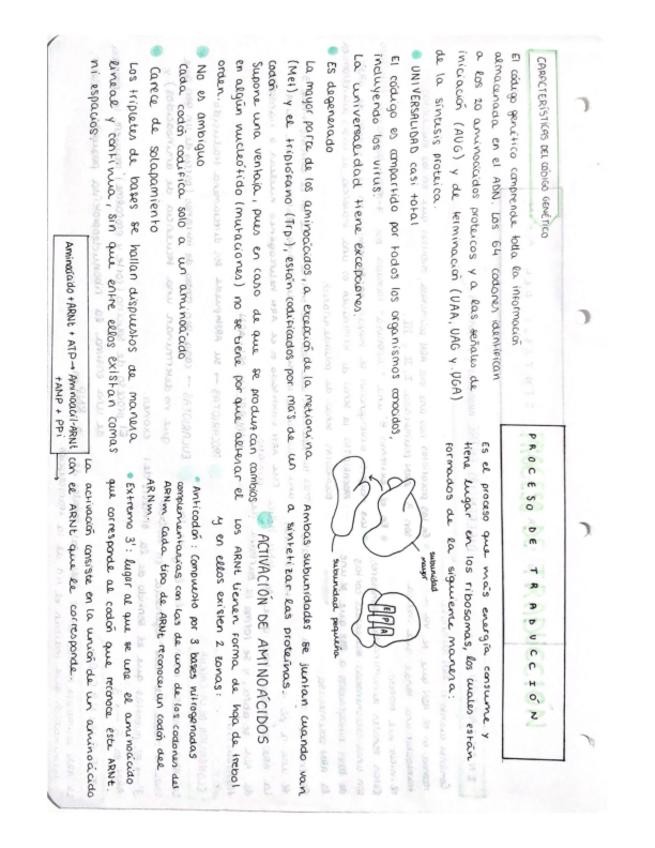 CARACTERÍSTICAS DEL CÓDIGO GENÉTICO
El código genético comprende toda la información
almacenada en el ADN. Los 64 codones identifican
a los 20 aminoácidos proteicos y a las señales de
iniciación (AUG) y de terminación (UAA, UAG y UGA)
de la síntesis proteica.
UNIVERSALIDAD casi total
El código es compartido por todos los organismos conocidos,
incluyendo los virus.
La universalidad tiene excepciones.
Es degenerado
La mayor parte de los aminoácidos, a excepción de la metionina
(Met) y el triptófano (Trp), están codificados por más de un
codón.
Supone una ventaja, pues en caso de que se produzcan cambios
en algún nucleótido (mutaciones) no se tiene por que alterar el
orden.
No es ambiguo
Cada codón codifica solo a un aminoácido
Carece de solapamiento
Los tripletes de bases se hallan dispuestos de manera
lineal y continua, sin que entre ellos existan comas
ni espacios.
PROCESO DE TRADUCCIÓN
Es el proceso que más energía consume y
tiene lugar en los ribosomas, los cuales están
formados de la siguiente manera:
subunidad
mayor
E P A
subunidad pequeña
Ambas subunidades se juntan cuando van
a sintetizar las proteínas.
ACTIVACIÓN DE AMINOÁCIDOS
Los ARNt tienen forma de hoja de trebol
y en ellos existen 2 zonas:
Anticodón: Compuesto por 3 bases nitrogenadas
complementarias con las de uno de los codones del
ARNm. Cada tipo de ARNt reconoce un codón del
ARNm.
Extremo 3': lugar al que se une el aminoácido
que corresponde al codón que reconoce este ARNt.
La activación consiste en la unión de un aminoácido
con el ARNt que le corresponde.
Aminoácido + ARNt + ATP → Aminoacil-ARNt
+ AMP + PPi